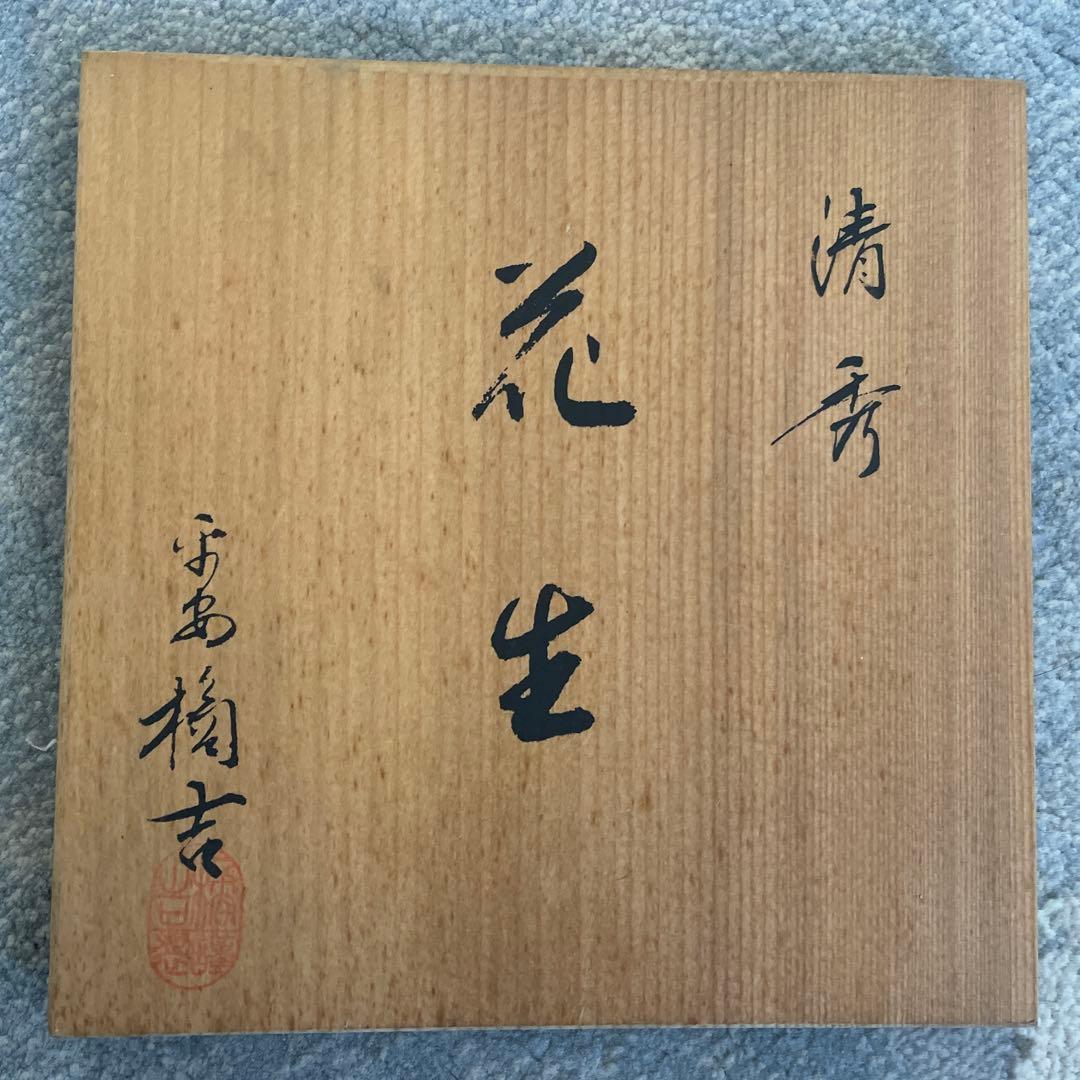 清秀
花生
平安橘吉